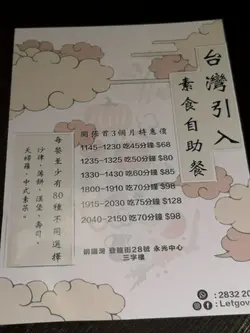 台灣引入
素食自助餐
開張首3個月特惠價
1145-1230 吃45分鐘 $68
1235-1325 吃50分鐘 $80
1330-1430 吃60分鐘 $85
1800-1910 吃70分鐘 $98
1915-2030 吃75分鐘 $128
2040-2150 吃70分鐘 $98
每餐至少有80種不同選擇
沙律、薄餅、漢堡、壽司、
天婦羅、中式素菜。
銅鑼灣 登龍街28號 永光中心
三字樓
: 2832 20
: Letgov